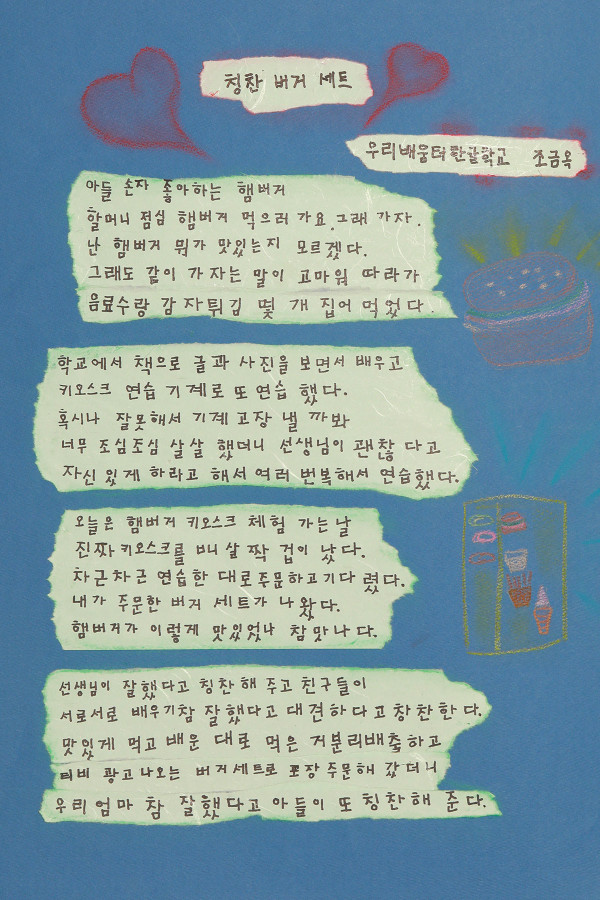 칭찬 버거 세트
우리배움터한글학교 조금옥
아들 손자 좋아하는 햄버거
할머니 점심 햄버거 먹으러 가요. 그래 가자.
난 햄버거 뭐가 맛있는지 모르겠다.
그래도 같이 가자는 말이 고마워 따라가
음료수랑 감자튀김 몇 개 집어 먹었다.
학교에서 책으로 글과 사진을 보면서 배우고
키오스크 연습 기계로 또 연습 했다.
혹시나 잘못해서 기계 고장 낼 까봐
너무 조심조심 살살 했더니 선생님이 괜찮 다고
자신 있게 하라고 해서 여러 번복해서 연습했다.
오늘은 햄버거 키오스크 체험 가는날
진짜 키오스크를 보니 살 짝 겁이 났다.
차근차근 연습한 대로주문하고기다 렸다.
내가 주문한 버거 세트가 나왔다.
햄버거가 이렇게 맛있었나 참맛나다.
선생님이 잘했다고 칭찬해 주고 친구들이
서로서로 배우기참 잘했다고 대견하다고 창찬한다.
맛있게 먹고 배운 대로 먹은 거분리배출하고
티비 광고나오는 버거세트로 포장주문해 갔더니
우리엄마 참 잘했다고 아들이 또 칭찬해 준다.